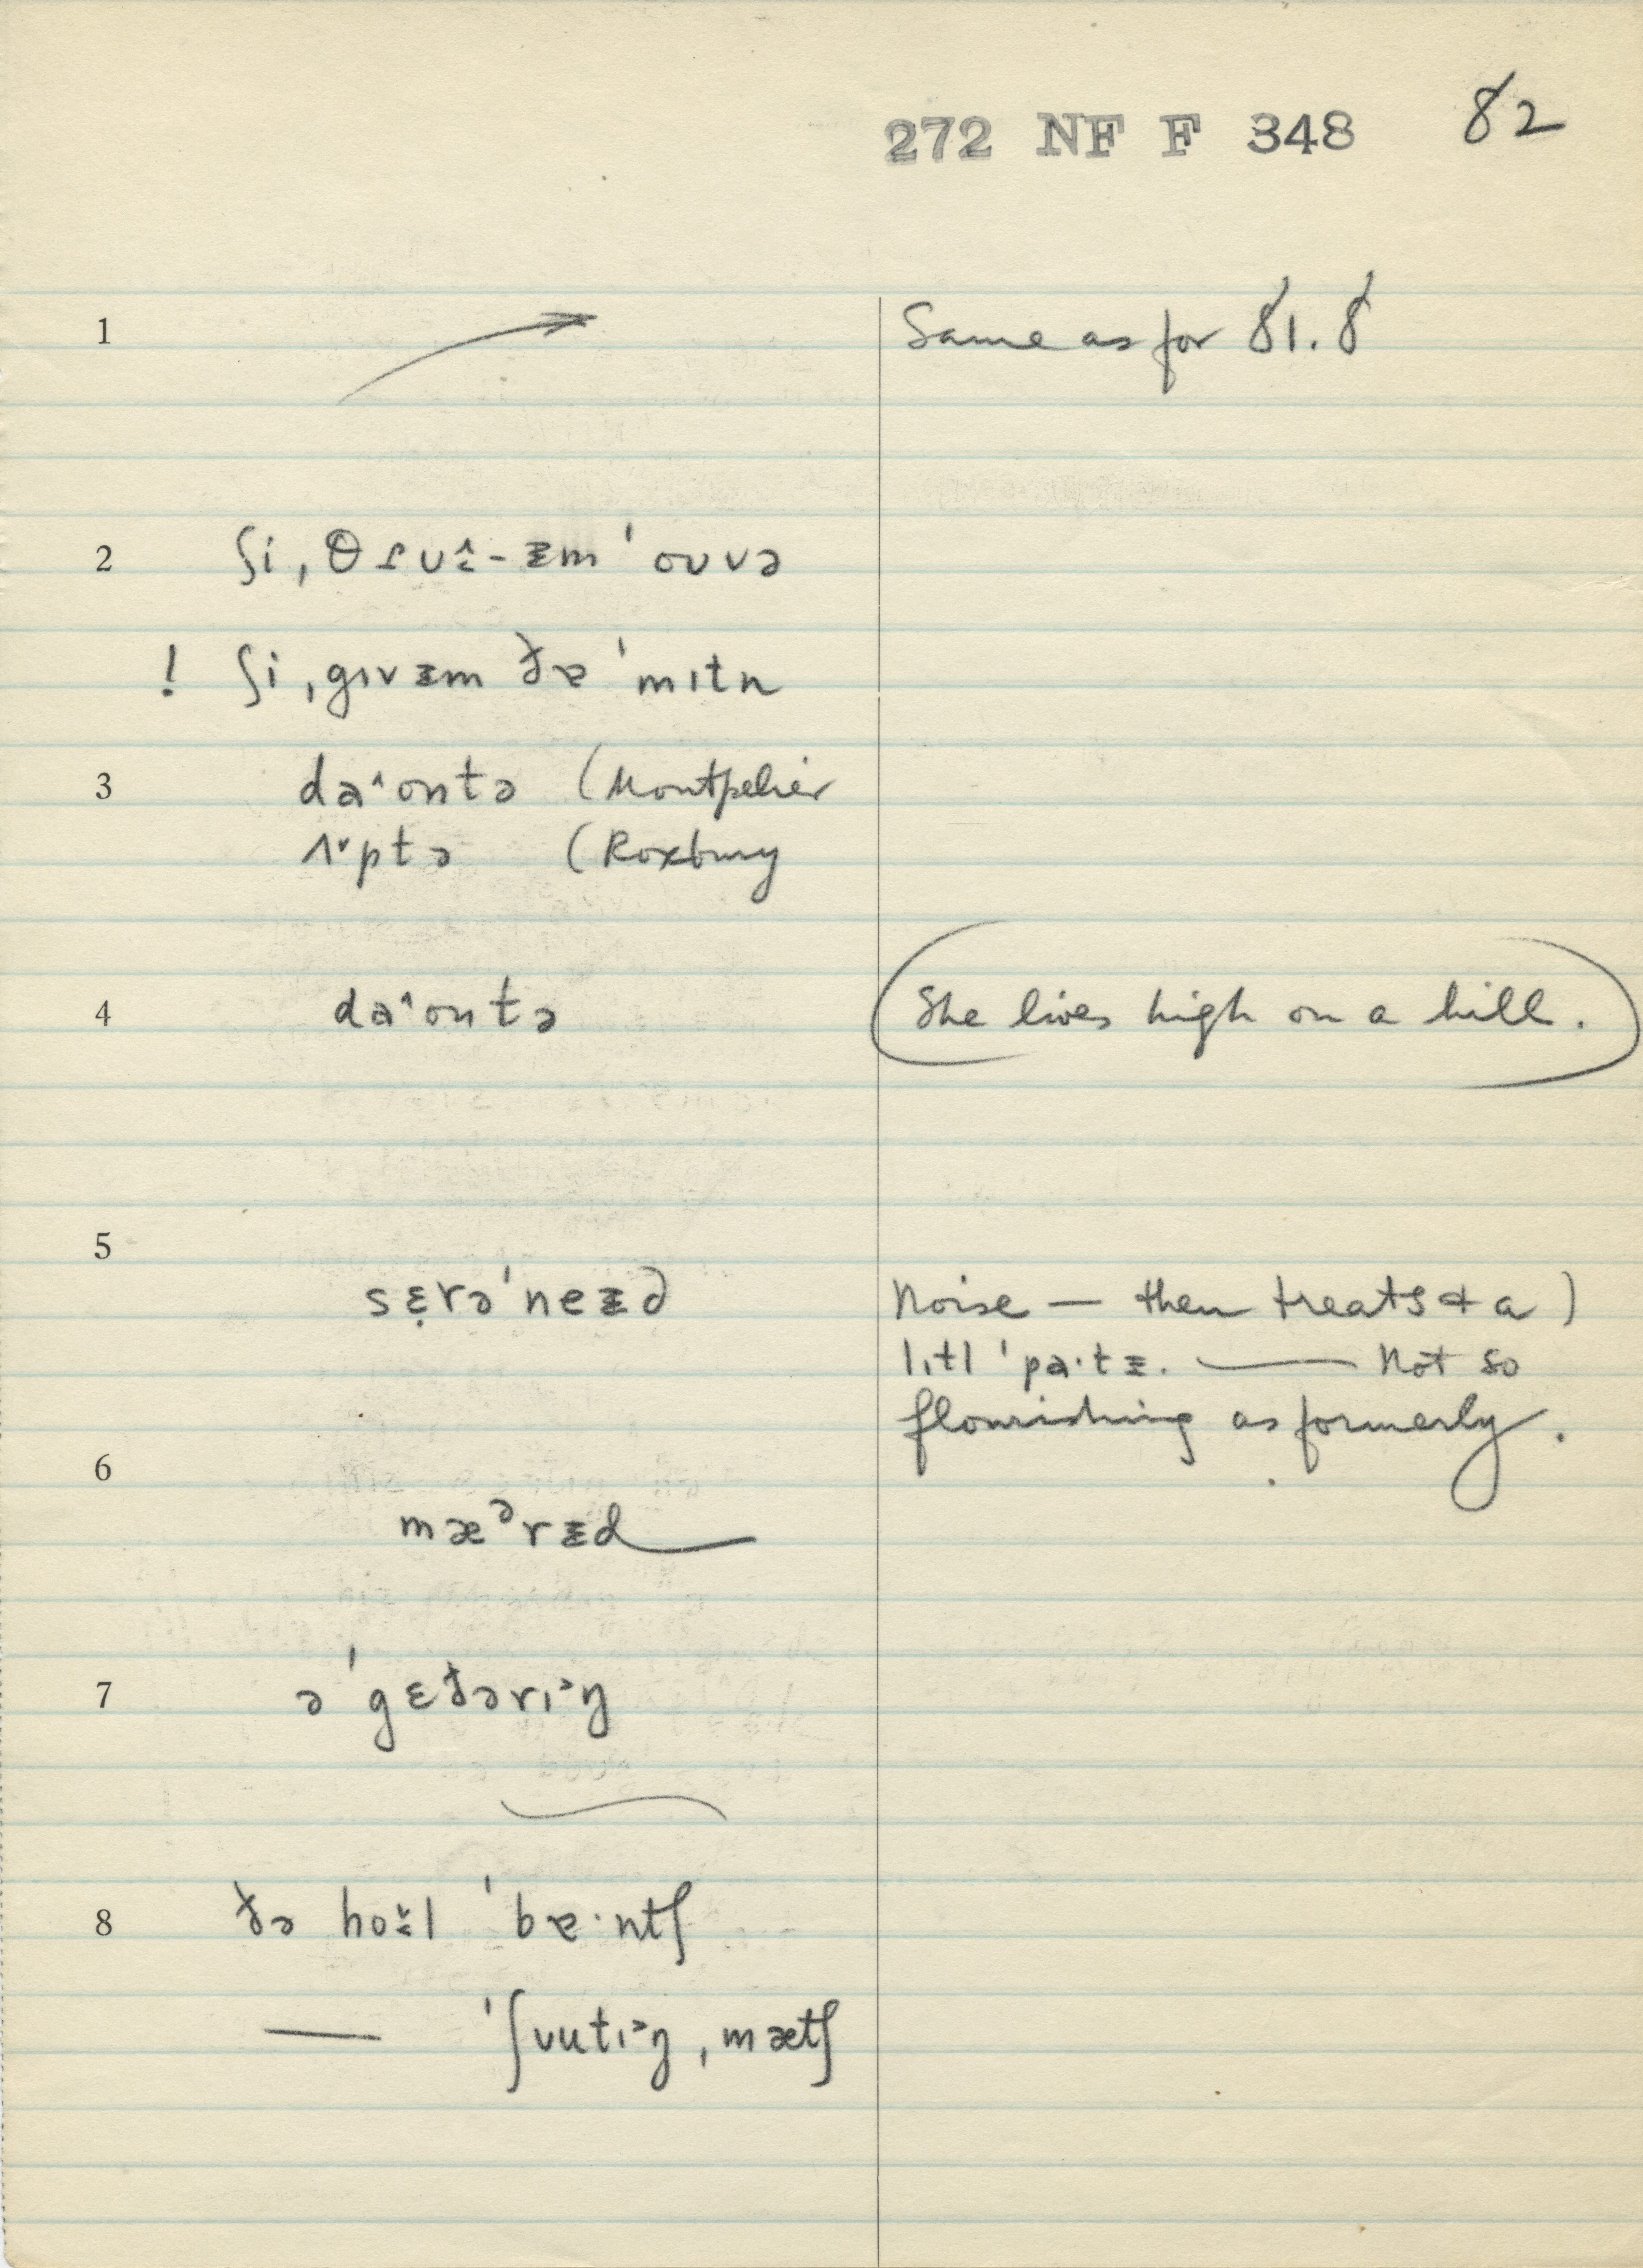 272 NF F 348 82
1 Same as for 81.8
2
! ʃi ˌgɪvɨm ðɐ ˈmɪtn
3 daˆontə (Montpelier
ʌ˅ptə (Roxbury
4 daˆontə She lives high on a hill.
5
sɛ̣rəˈneɨd Noise — then treats & a )
lɪtl ˈpa·tɨ. — Not so
flourishing as formerly.
6
mæᵊrɨd
7 ə ˈgɛðərɪ˃ŋ
8 ðə hoɤ̌l ˈbɐ·ntʃ
— ˈʃʊutɪ˃ŋ ˌmætʃ